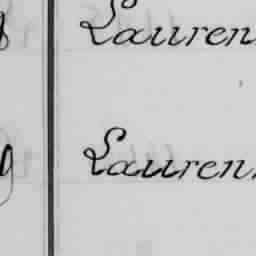 Lauren
Lauren